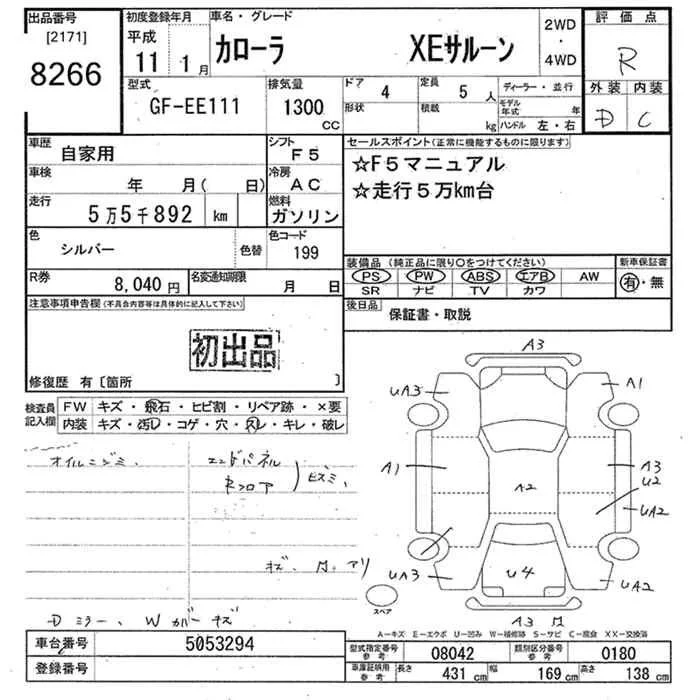 出品番号 初度登録年月 車名・グレード 2WD・4WD 評価点
[2171] 平成
8266 11 1月 カローラ XEサルーン R
型式 排気量 ドア 4 定員 5人 ディーラー・並行 外装 内装
GF-EE111 1300CC 形状 積載 kg モデル年式 年 D C
ハンドル 左・右
車歴 自家用 シフト F5 セールスポイント(正常に機能するものに限ります)
車検 年 月( 日) 冷房 AC ☆F5マニュアル
走行 5万5千892 km 燃料 ガソリン ☆走行5万km台
色 シルバー 色替 色コード 199
装備品(純正品に限り○をつけてください) 新車保証書
R券 8,040円 名変通知期限 月 日 PS PW ABS エアB AW 有・無
SR ナビ TV カワ
注意事項申告欄(不具合内容等は具体的に記入して下さい) 後日品 保証書・取説
初出品
修復歴 有〔箇所 〕
検査員記入欄 FW キズ・飛石・ヒビ割・リペア跡・×要
内装 キズ・汚レ・コゲ・穴・スレ・キレ・破レ
オイルニジミ、 エンドパネル
Rフロア
キズ、
アリ
Dミラー、Wカバーキズ
A3
UA3 A1
A1 A2 A3
U2
UA2
UA3 U4 UA2
A3
スペア
A-キズ E-エクボ U-凹み W-補修跡 S-サビ C-腐食 XX-交換済
車台番号 5053294 型式指定番号参考 08042 類別区分番号参考 0180
登録番号 車庫証明用参考 長さ 431cm 幅 169cm 高さ 138cm